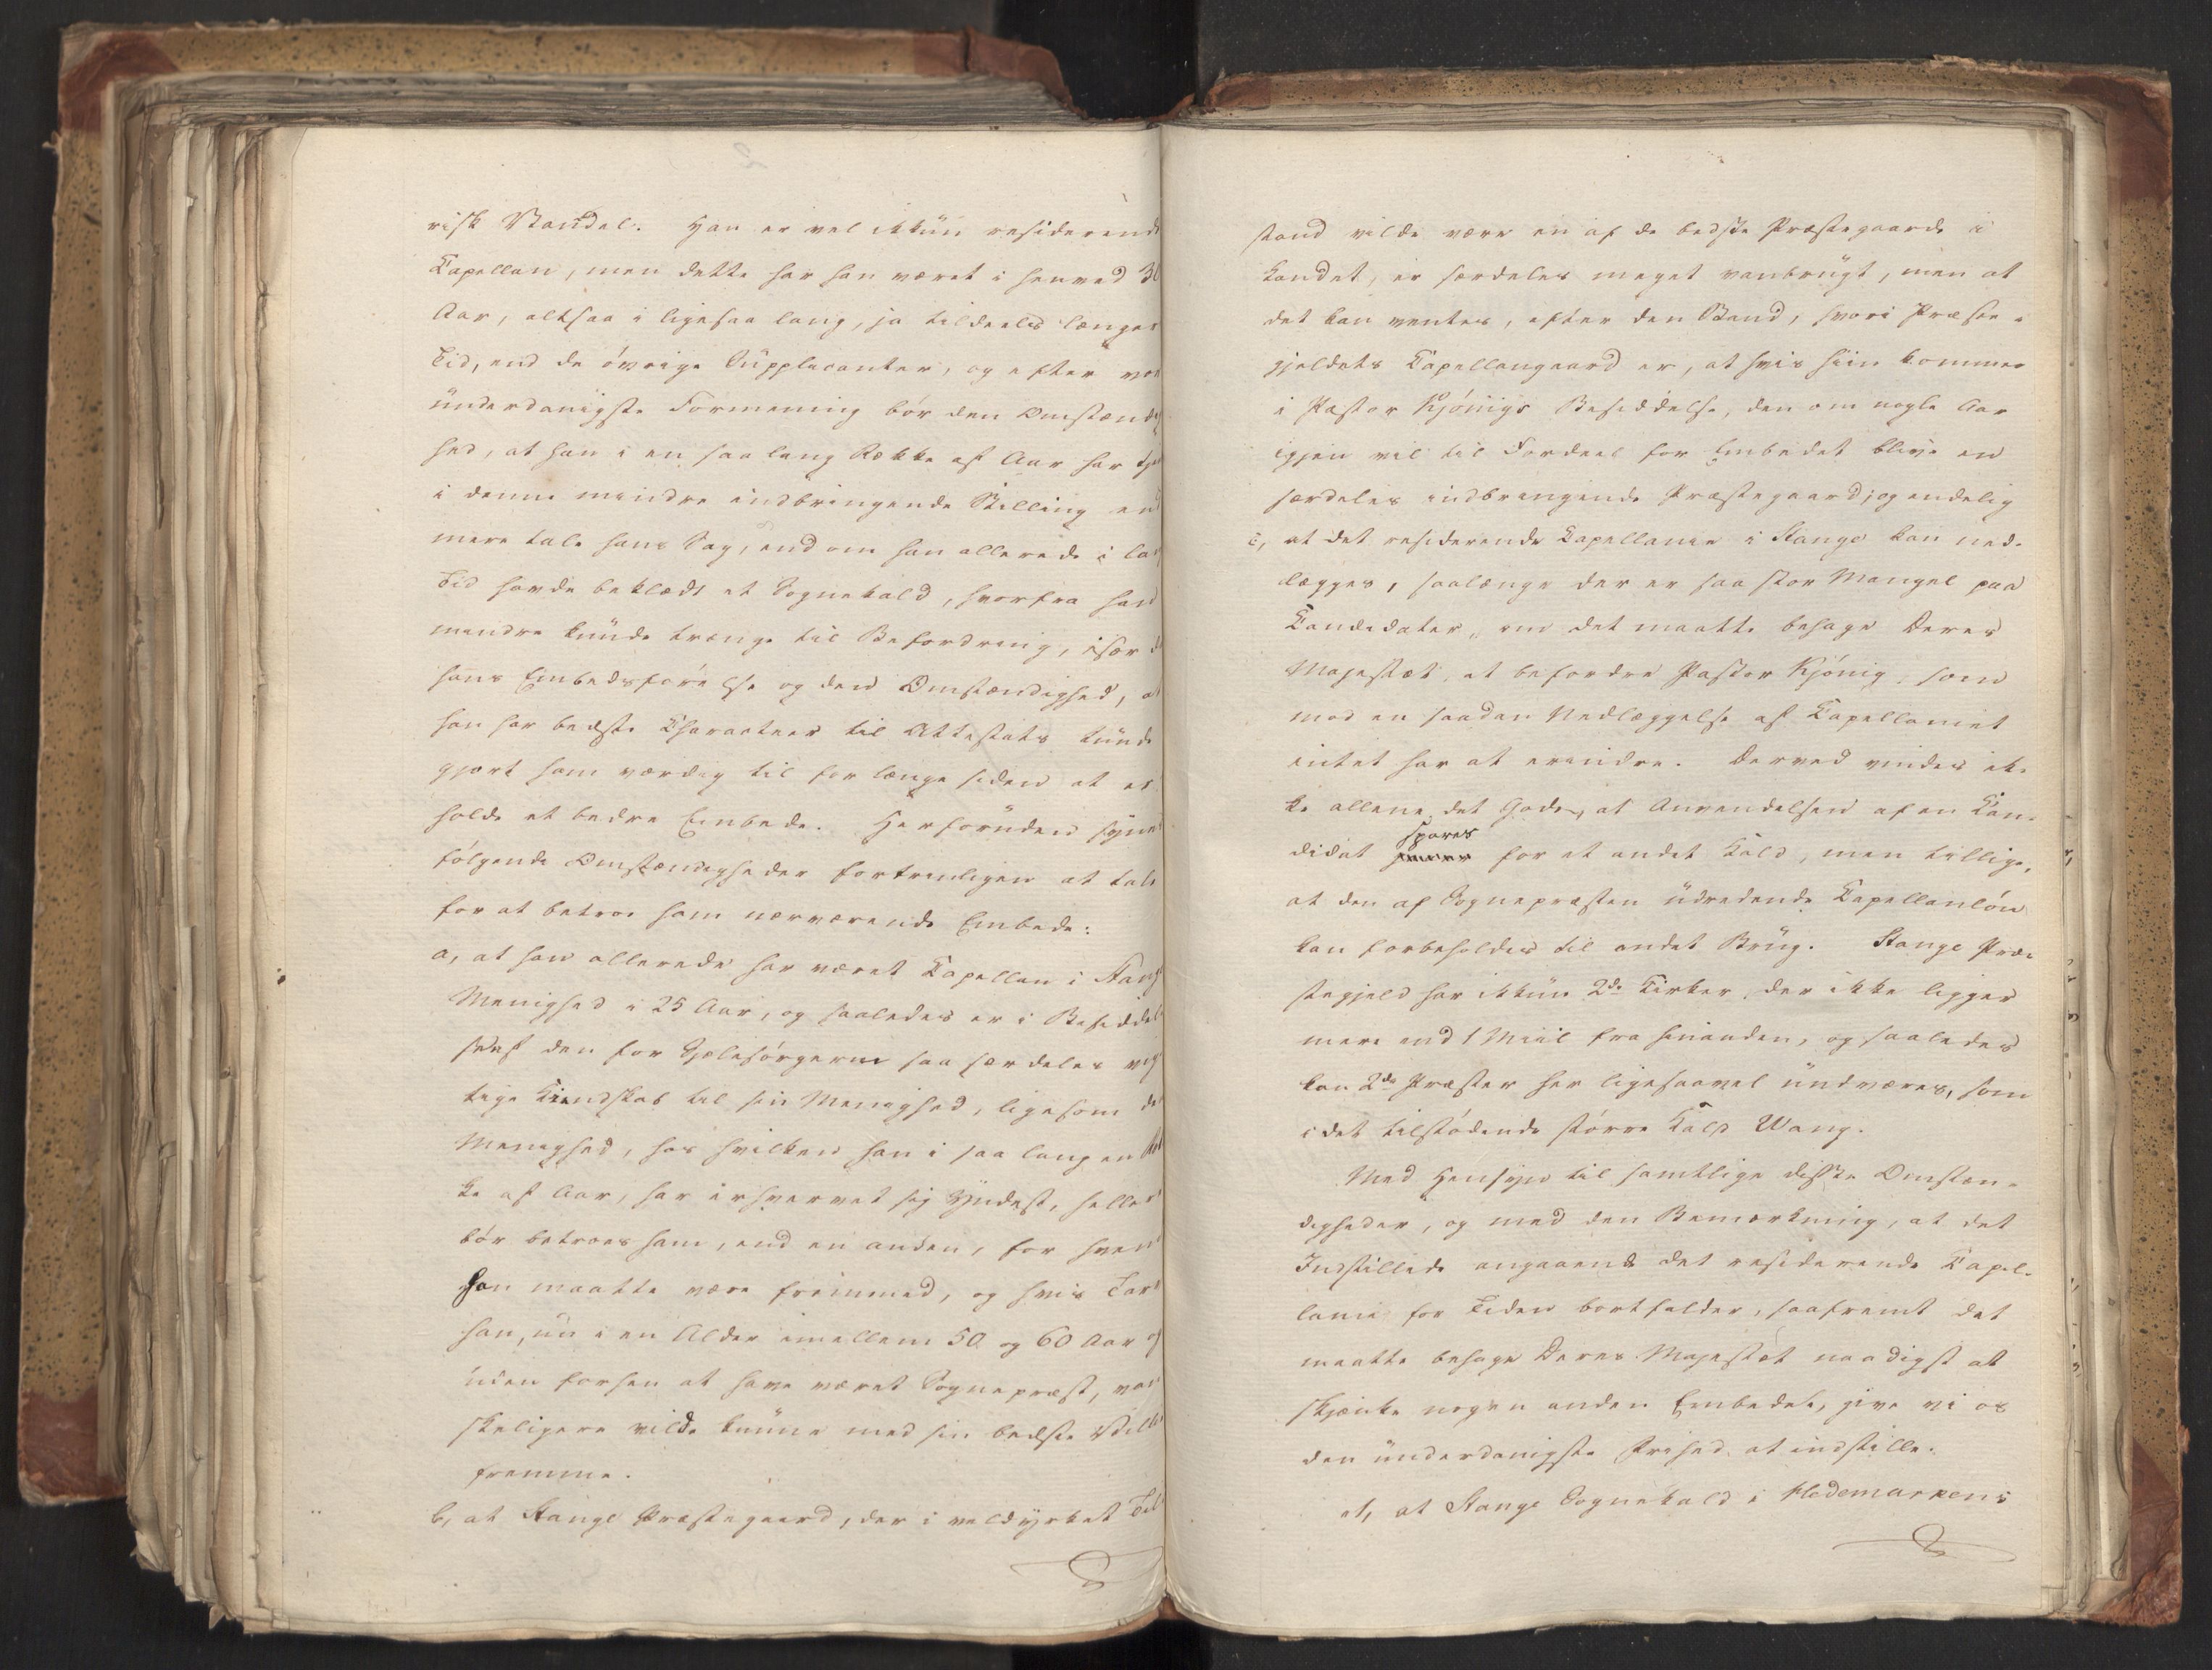 risk Vandel. Han er vel ikkun residerende
Capellan, men dette har han været i henved 30
Aar, altsaa i ligesaa lang, ja tildeels længer
Tid, end de øvrige Supplicanter, og efter vor
underdanigste Formening bør den Omstændig
hed, at han i en saa lang Række af Aar har tjent
i denne mindre indbringende Stilling end
mere tale hans Sag, end om han allerede i lang
Tid havde beklædt et Sognekald, hvorfra han
mindre kunde trænge til Befordring, især da
hans Embedsførelse og den Omstændighed, at
han har bedste Characteer til Attestats kunde
gjort ham værdig til for længe siden at er
holde et bedre Embede. Herforuden synes
følgende Omstændigheder fortrinligen at tale
for at betroe ham nærværende Embede:
a, at han allerede har været Capellan i Stange
Menighed i 25 Aar, og saaledes er i Besiddel
se af den for Sjælesørgeren saa særdeles vig
tige Kiendskab til sin Menighed, ligesom den
Menighed, hos hvilken han i saa lang en Ræk
ke af Aar, har erhvervet sig Yndest, heller
bør betroes ham, end en anden, for hvem
han maatte være fremmed, og hvis Tarv
han, nu i en Alder imellem 50 og 60 Aar og
uden forhen at have været Sognepræst, van
skeligere vilde kunne med sin bedste Villie
fremme.
b, at Stange Præstegaard, der i veldyrket Til
stand vilde være en af de bedste Præstegaarde i
Landet, er særdeles meget vanbrugt, men at
det kan ventes, efter den Stand, hvori Præste-
gjeldets Capellangaard er, at hvis hiin kommer
i Pastor Kjønigs Besiddelse, den om nogle Aar
igjen vil til Fordeel for Embedet blive en
særdeles indbringende Præstegaard; og endelig
c, at det residerende Capellanie i Stange kan ned-
lægges, saalænge der er saa stor Mangel paa
Candidater, om det maatte behage Deres
Majestæt, at befordre Pastor Kjønig, som
mod en saadan Nedlæggelse af Capellaniet
intet har at erindre. Derved vindes ik-
ke allene det Gode, at Anvendelsen af en Can-
didat spares for et andet Kald, men tillige,
at den af Sognepræsten udredende Capellanløn
kan forbeholdes til andet Brug. Stange Præ-
stegjeld har ikkun 2de Kirker, der ikke ligger
mere end 1 Miil fra hinanden, og saaledes
kan 2de Præster her ligesaavel undværes, som
i det tilstødende større Kald Wang.
Med Hensyn til samtlige disse Omstæn-
digheder, og med den Bemærkning, at det
Indstillede angaaende det residerende Capel-
lanie for Tiden bortfalder, saafremt det
maatte behage Deres Majestæt naadigst at
skjænke nogen anden Embedet, give vi os
den underdanigste Frihed at indstille.
at, at Stange Sognekald i Hedemarkens